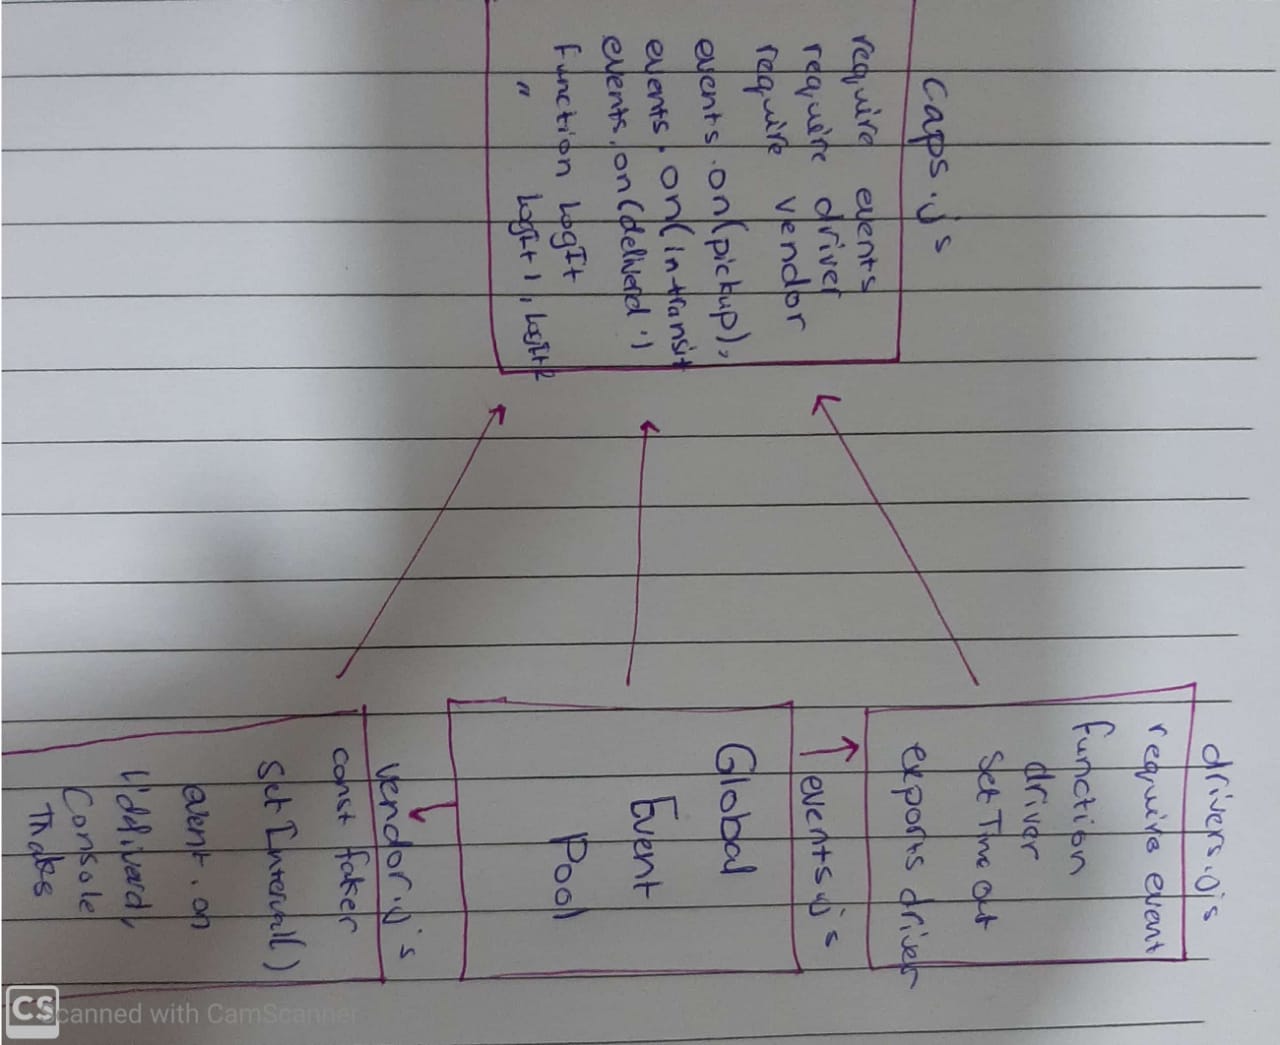 caps.js
require events
require driver
require vendor
events.on(pickup),
events.on(in-transit
events.on(deliverd')
function LogIt
" LogIt1, LogIt2
drivers.js
require event
function
driver
SetTimeout
exports driver
events.js
Global
Event
Pool
vendor.js
const faker
SetInterval()
event.on
('deliverd,
Console
CS
Scanned with CamScanner